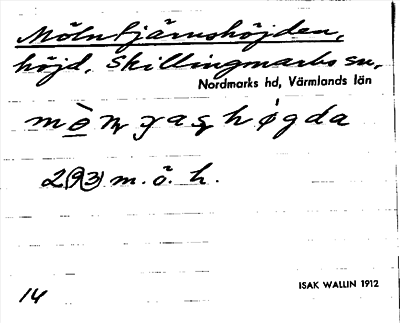 Mölntjärnshöjden,
höjd. Skillingmarks sn,
Nordmarks hd, Värmlands län
293 m. ö. h.
14
ISAK WALLIN 1912